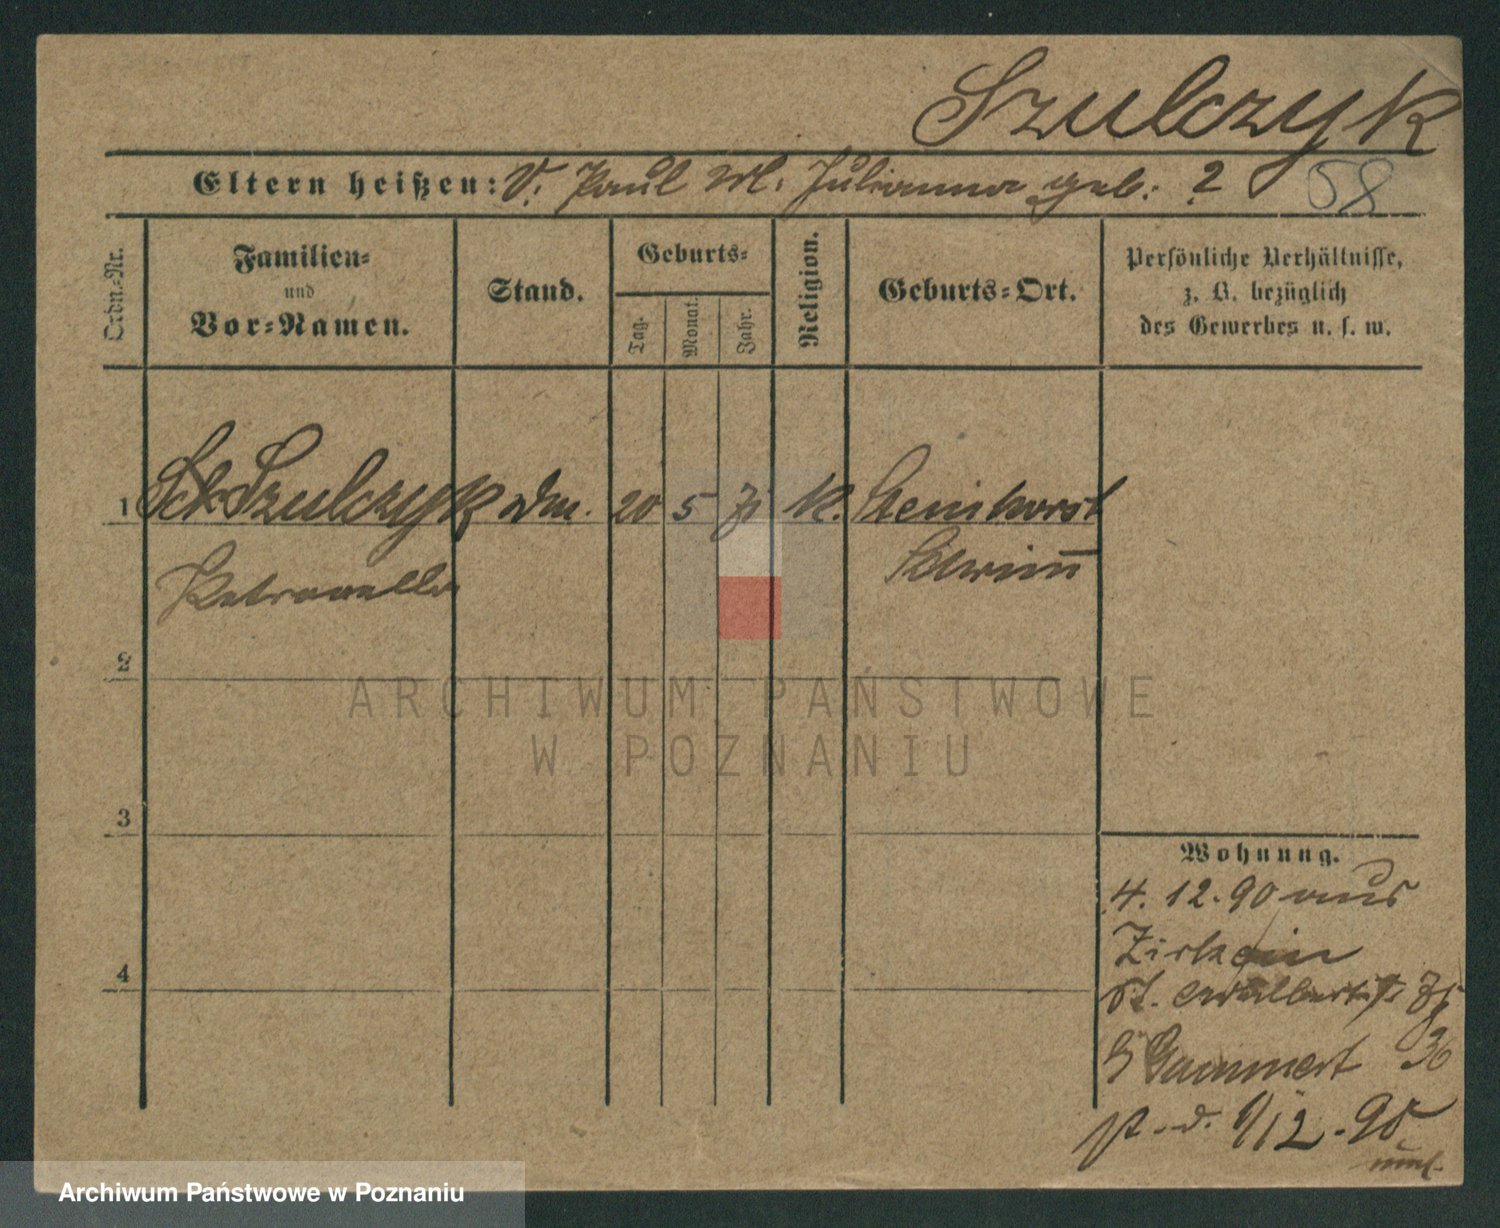 Szulczyk
Eltern heißen: V. Paul M. Julianna geb: ?
58
Ordn.-Nr.
Familien-
und
Vor-Namen.
Stand.
Geburts-
Tag.
Monat.
Jahr.
Religion.
Geburts-Ort.
Persönliche Verhältnisse,
z. B. bezüglich
des Gewerbes u. s. w.
1 Szulczyk 20 5 71 K.
Petronella
2
3
4
Wohnung.
4. 12. 90 aus
Zirke in
St. Adalbert
36
12. 90
ARCHIWUM PAŃSTWOWE
W POZNANIU
Archiwum Państwowe w Poznaniu